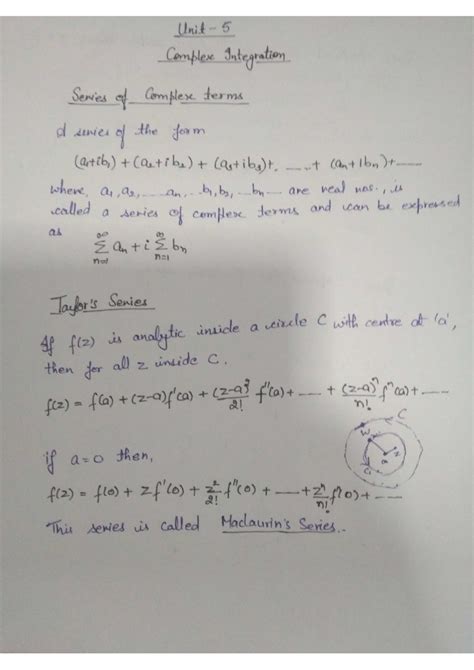 Unit - 5
Complex Integration
Series of Complex terms
A series of the form
(a₁+ib₁) + (a₂+ib₂) + (a₃+ib₃)+. ......+ (aₙ+ibₙ)+......
where, a₁,a₂,......aₙ....b₁,b₂,....bₙ.... are real nos., is
called a series of complex terms and can be expressed
as
∞ ∑ n=1 aₙ + i ∞ ∑ n=1 bₙ
Taylor's Series
If f(z) is analytic inside a circle C with centre at 'a',
then for all z inside C.
f(z) = f(a) + (z-a)f'(a) + (z-a)²/2! f''(a) + ...... + (z-a)ⁿ/n! fⁿ(a) + ......
C
w
z
a
C₁
if a=0 then,
f(z) = f(0) + zf'(0) + z²/2! f''(0) + ...... + zⁿ/n! fⁿ(0) + ......
This series is called Maclaurin's Series.